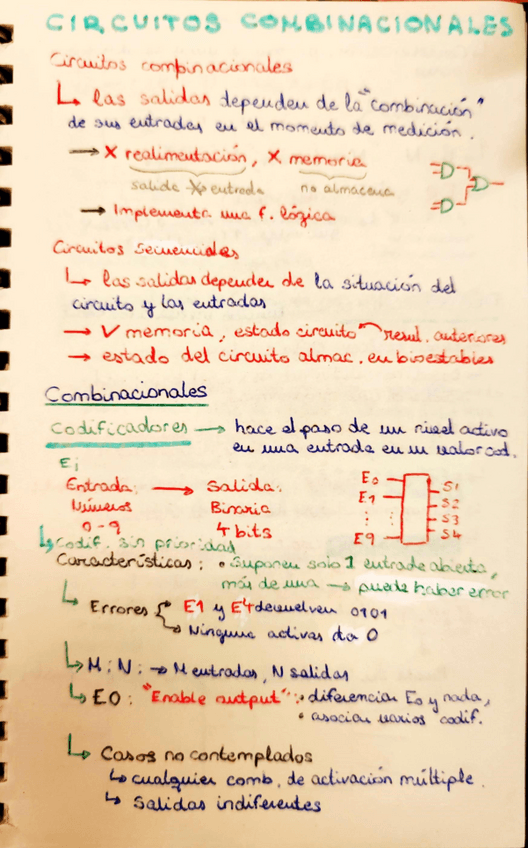 CIRCUITOS COMBINACIONALES
Circuitos combinacionales
↳ las salidas dependen de la "combinación"
de sus entradas en el momento de medición.
→ X realimentación, X memoria
salida entrada no almacena
→ Implementa una f. lógica
Circuitos secuenciales
↳ las salidas dependen de la situación del
circuito y las entradas
→ V memoria, estado circuito resul. anteriores
→ estado del circuito almac. en bioestables
Combinacionales
Codificadores → hace el paso de un nivel activo
en una entrada en un valor cod.
Ej
Entrada: → Salida:
Números Binaria
0-9 4 bits
E0 S1
E1 S2
: : S3
E9 S4
↳ Codif. sin prioridad
Características: • Suponen solo 1 entrada abierta,
más de una → puede haber error
↳ Errores { E1 y E4 devuelven 0101
↳ Ninguna activas da 0
↳ M:N: → M entradas, N salidas
↳ EO: "Enable output": • diferenciar E0 y nada,
• asociar varios codif.
↳ Casos no contemplados
↳ cualquier comb. de activación múltiple.
↳ Salidas indiferentes